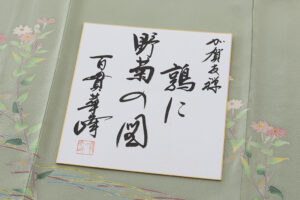 加賀友禅
鶉に
野菊の図
百貫華峰